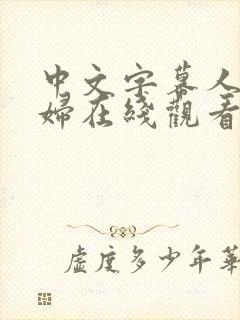 中文字幕人
婦在綫觀看
虛度多少年華